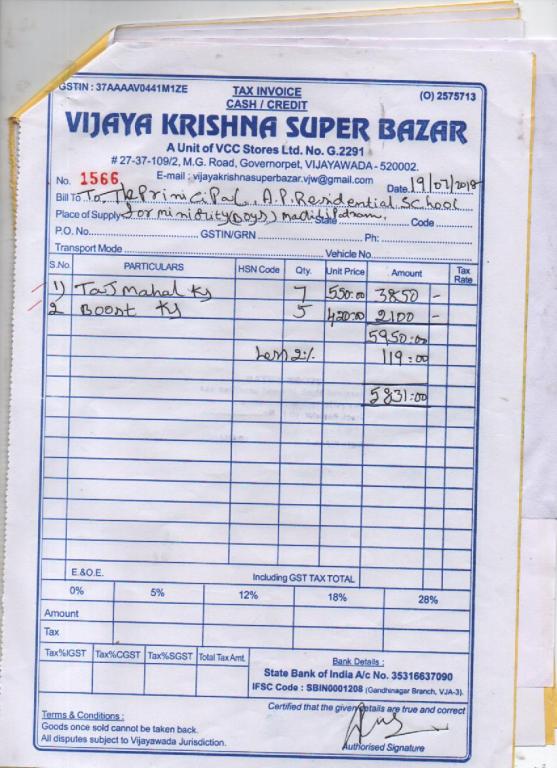 GSTIN : 37AAAAV0441M1ZE TAX INVOICE (O) 2575713
CASH / CREDIT
VIJAYA KRISHNA SUPER BAZAR
A Unit of VCC Stores Ltd. No. G.2291
# 27-37-109/2, M.G. Road, Governorpet, VIJAYAWADA - 520002.
No. 1566 E-mail : vijayakrishnasuperbazar.vjw@gmail.com Date 19/07/2018
Bill To To, The Principal, A.P. Residential School
Place of Supply for minority (Boys) State Code
P.O. No. GSTIN/GRN Ph:
Transport Mode Vehicle No.
S.No. PARTICULARS HSN Code Qty. Unit Price Amount Tax Rate
1) Taj Mahal Kg 7 550:00 3850 -
2 Boost Kg 5 420:00 2100 -
5950:00
Less 2% 119:00
5831:00
E.&O.E. Including GST TAX TOTAL
0% 5% 12% 18% 28%
Amount
Tax
Tax%IGST Tax%CGST Tax%SGST Total Tax Amt.
Bank Details :
State Bank of India A/c No. 35316637090
IFSC Code : SBIN0001208 (Gandhinagar Branch, VJA-3).
Certified that the given details are true and correct
Terms & Conditions :
Goods once sold cannot be taken back.
All disputes subject to Vijayawada Jurisdiction.
Authorised Signature